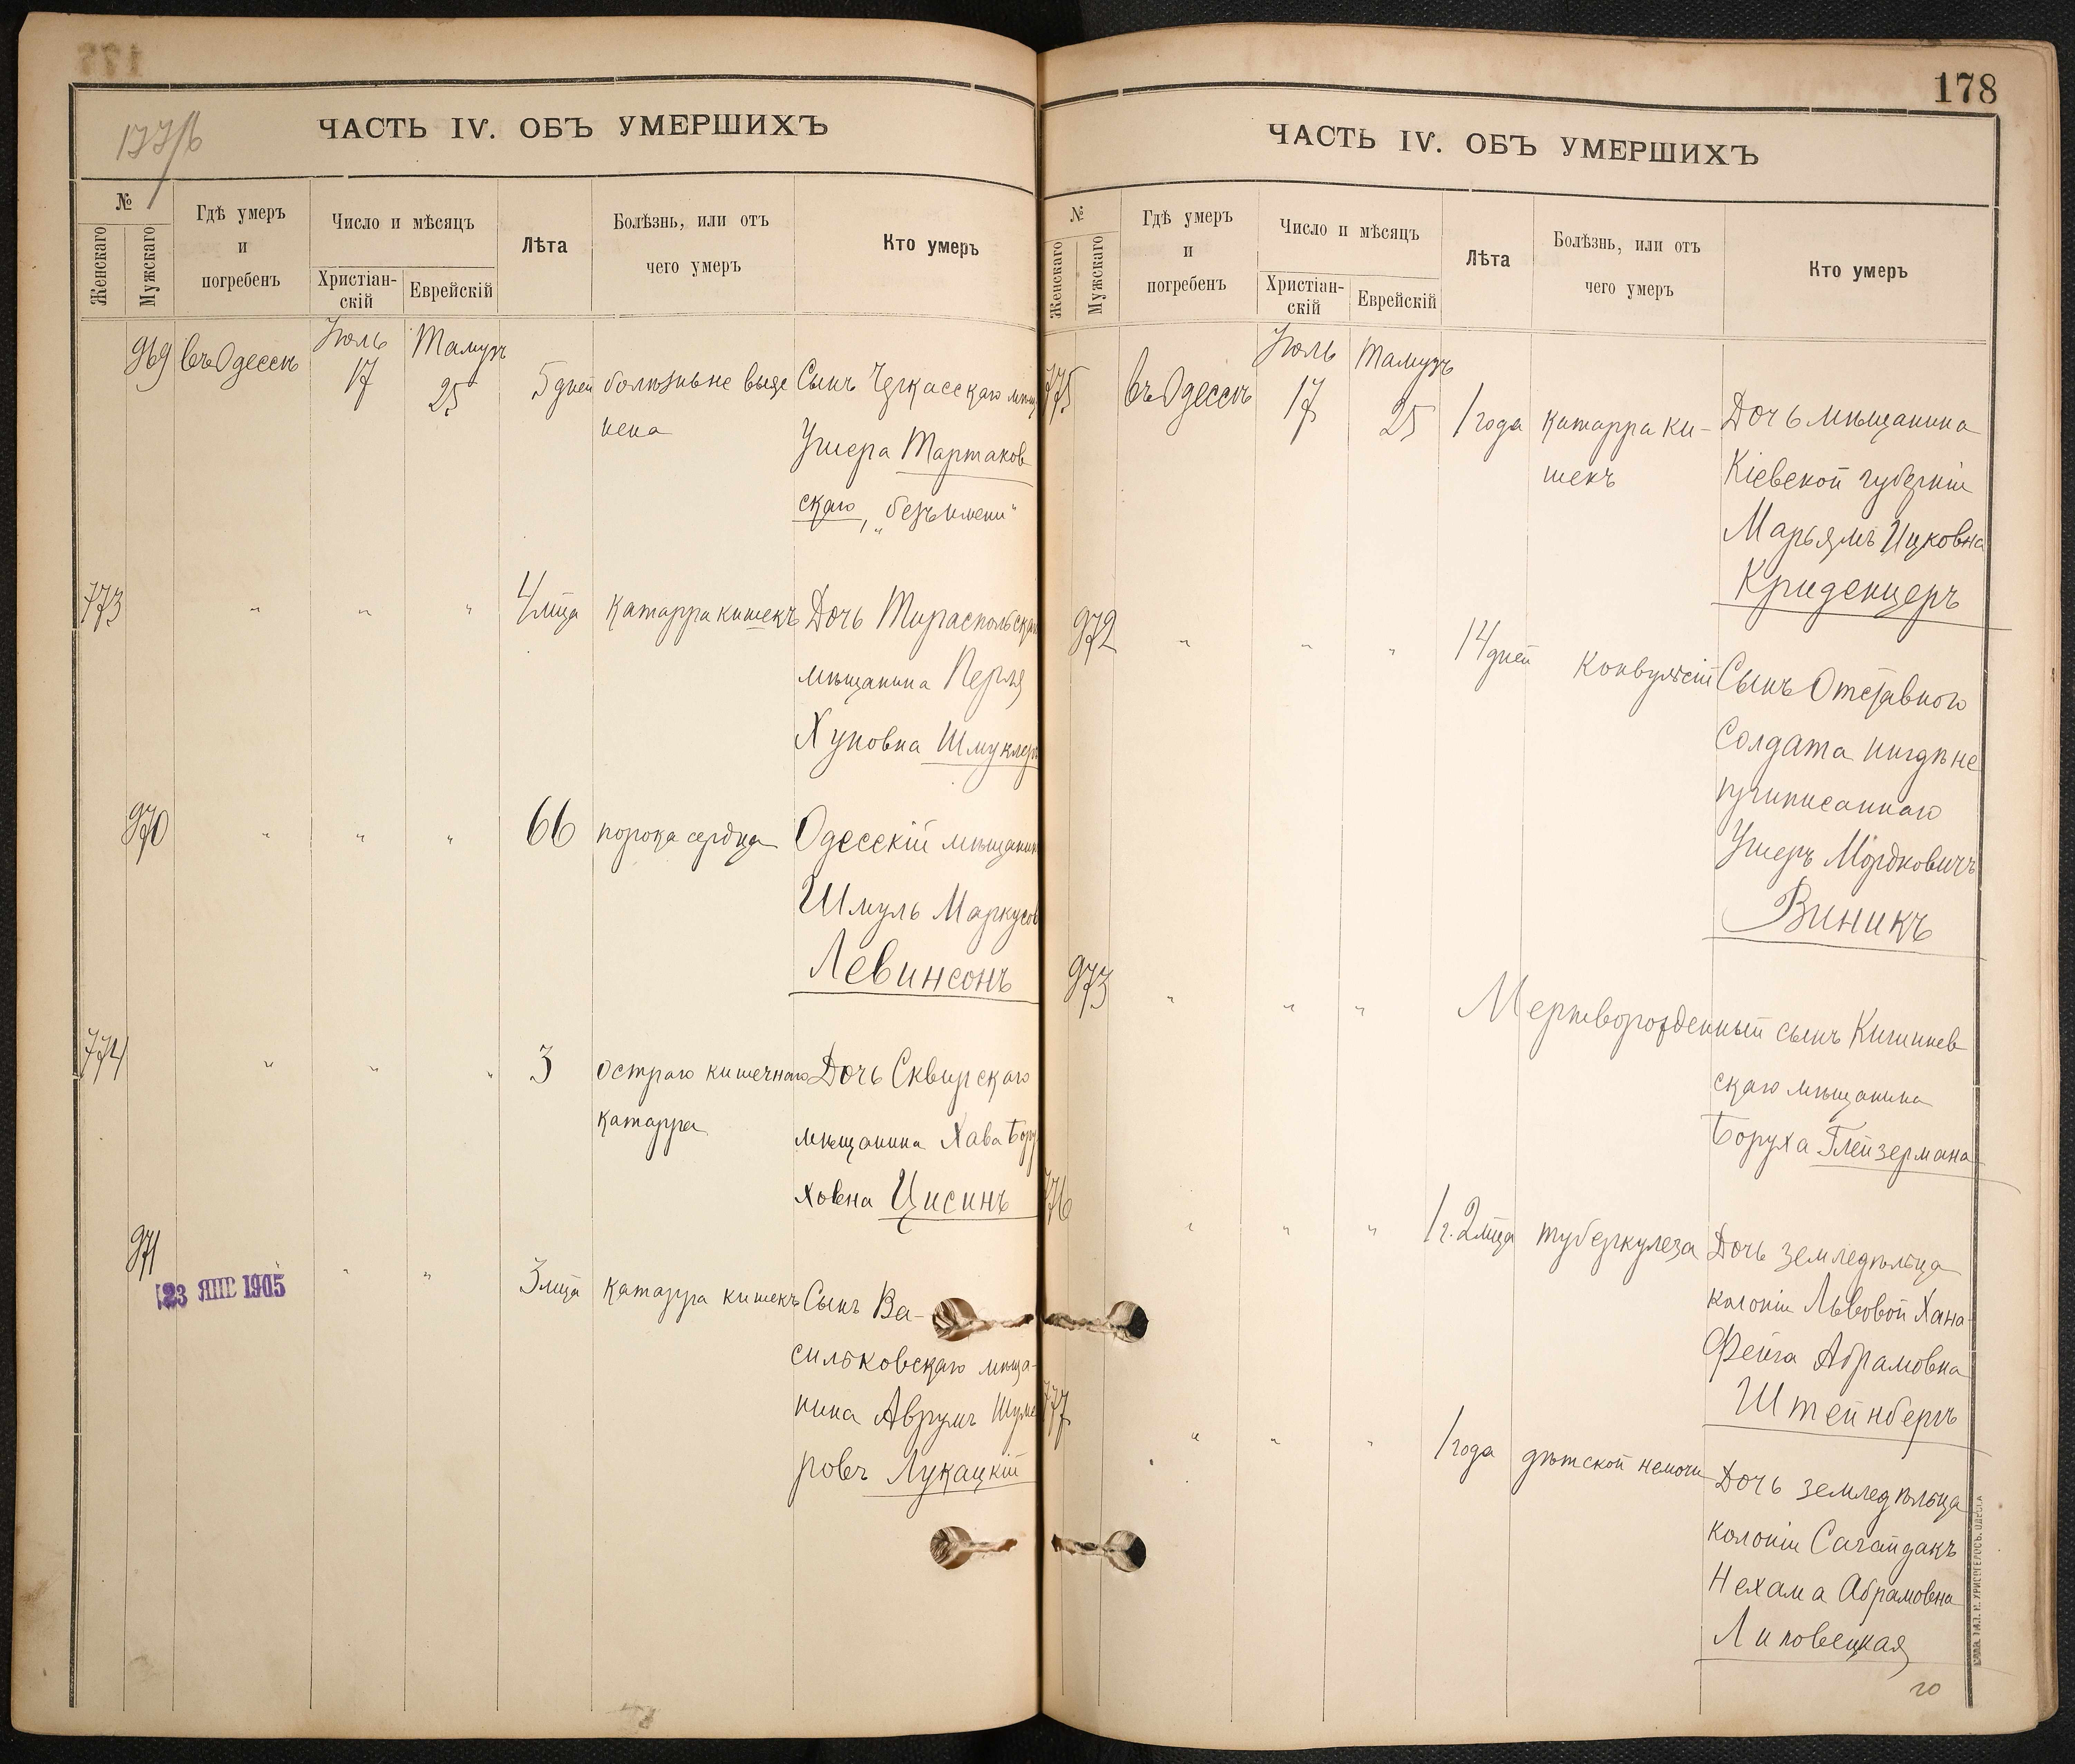 177/б
ЧАСТЬ IV. ОБЪ УМЕРШИХЪ
№
Женскаго
Мужскаго
Гдѣ умеръ
и
погребенъ
Число и мѣсяцъ
Христіан-
скій
Еврейскій
Лѣта
Болѣзнь, или отъ
чего умеръ
Кто умеръ
969 въ Одессѣ Іюль 17 Тамузъ 25 5 дней болѣзнь не выяс Сынъ Черкасскаго мѣщ
нена Ушера Мартаков
скаго, „безъ имени"
773 " " " 4 мца катарра кишекъ Дочь Тираспольскаго
мѣщанина Перля
Хуновна Шмуклеръ
970 " " " 66 порока сердца Одесскій мѣщанинъ
Шмуль Маркусов
Левинсонъ
774 " " " 3 остраго кишечнаго Дочь Сквирскаго
катарра мѣщанина Хава Бору
ховна Цисинъ
971 " " " 3 мца катарра кишекъ Сынъ Ва-
23 ЯНВ 1905
сильковскаго мѣща-
нина Аврумъ Шуме
ровъ Лукацкій
178
ЧАСТЬ IV. ОБЪ УМЕРШИХЪ
№
Женскаго
Мужскаго
Гдѣ умеръ
и
погребенъ
Число и мѣсяцъ
Христіан-
скій
Еврейскій
Лѣта
Болѣзнь, или отъ
чего умеръ
Кто умеръ
775 въ Одессѣ Іюль 17 Тамузъ 25 1 года катарра ки- Дочь мѣщанина
шекъ Кіевской губерніи
Марьямъ Ицковна
Криденцеръ
972 " " " 14 дней конвульсій Сынъ Отставного
Солдата нигдѣ не
приписаннаго
Ушеръ Мордковичъ
Виникъ
973 " " " Мертворожденный сынъ Кишинев
скаго мѣщанина
Боруха Глейзермана
776 " " " 1 г. 2 мца туберкулеза Дочь земледѣльца
колоніи Львовой Хана-
Фейга Абрамовна
Штейнбергъ
777 " " " 1 года дѣтской немочи Дочь земледѣльца
колоніи Сагайдакъ
Нехама Абрамовна
Липовецкая
10